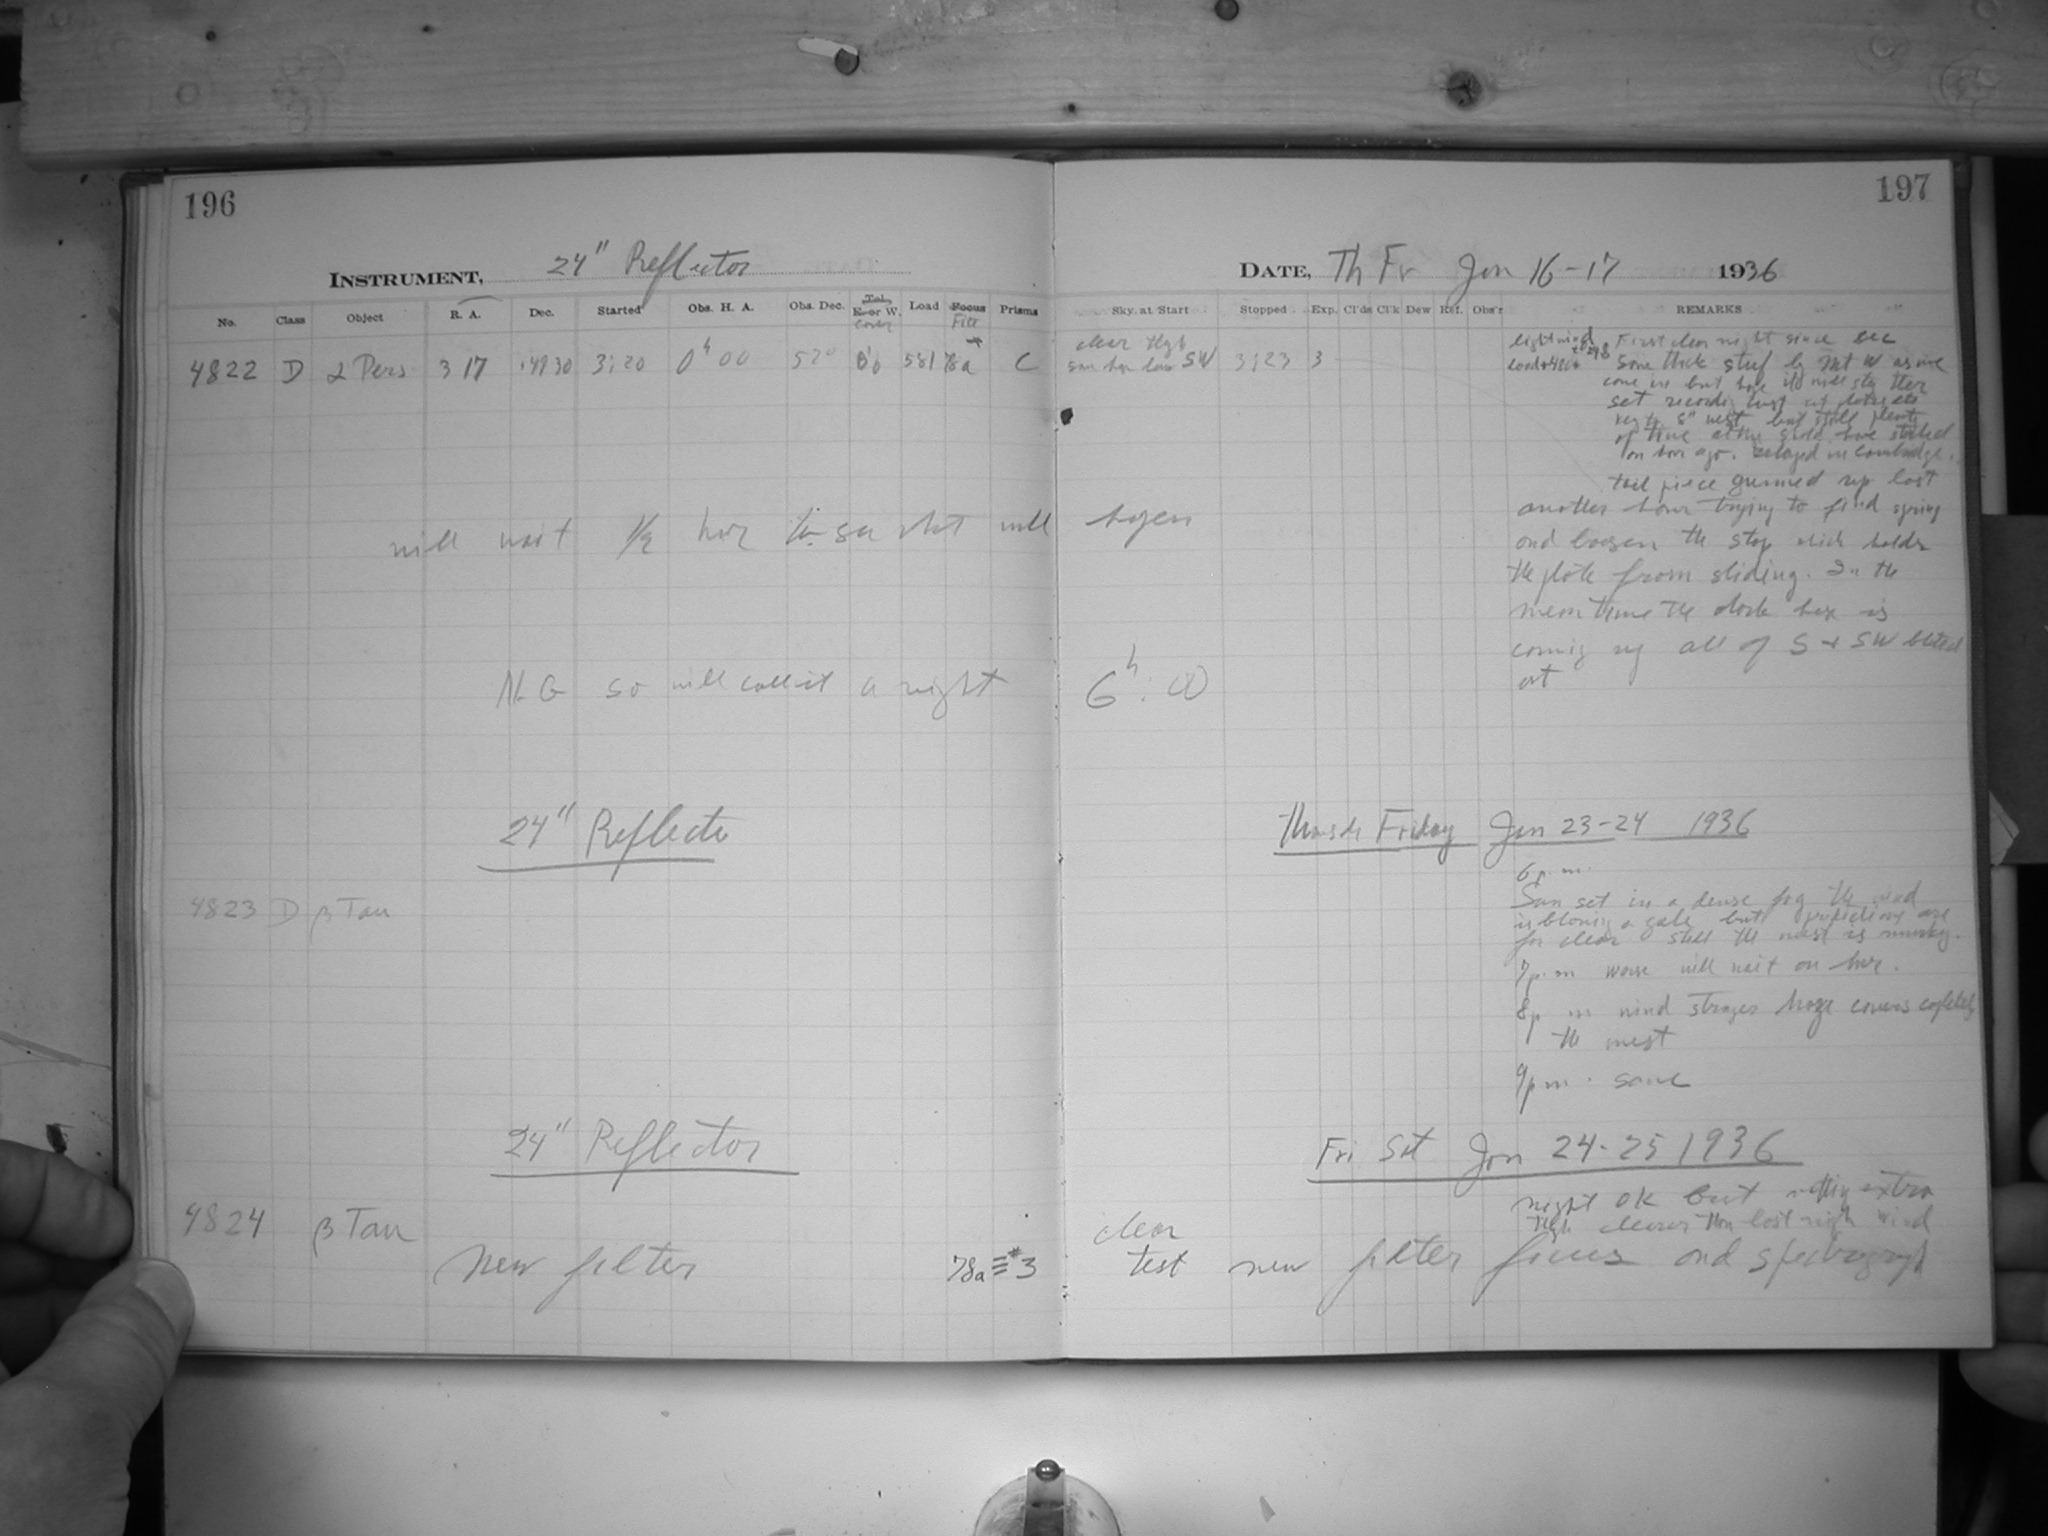 196
197
INSTRUMENT, 24" Reflector
DATE, Th Fr Jan 16-17 1936
No. Class Object R. A. Dec. Started Obs. H. A. Obs. Dec. Tel. E. or W. Load Focus Prisms
Filt
Sky at Start Stopped Exp. Cl'ds Cl'k Dew Ref. Obs'r REMARKS
4822 D α Pers 3 17 +49 30 3:20 0h 00 52° 581 78a C
clear
SW 3:23 3
First clear night since Dec
Some thick stuf by
come in but hope it will stay
set
west but still plenty
of time
hour ago. delayed in Cambridge.
tail piece gummed up lost
another hour trying to find spring
and loosen the stop which holds
the plate from sliding. In the
mean time the haze is
coming up all of S + SW
out
will wait 1/2 hour to see what will hapen
N. G so will call it a night 6h:00
24" Reflecto
Friday Jan 23-24 1936
4823 D β Tau
6 p.m.
Sun set in a dense fog the wind
is blowing a gale but predictions are
for clear still the west is murky.
7 p.m worse will wait an hour.
8 p m wind haze covers
the west
9 p m. same
24" Reflector
Fri Sat Jan 24-25 1936
4824 β Tau
night OK but nothing extra
clearer than last night wind
clear
new filter 78a ≡ #3 test new filter focus and spectrograph